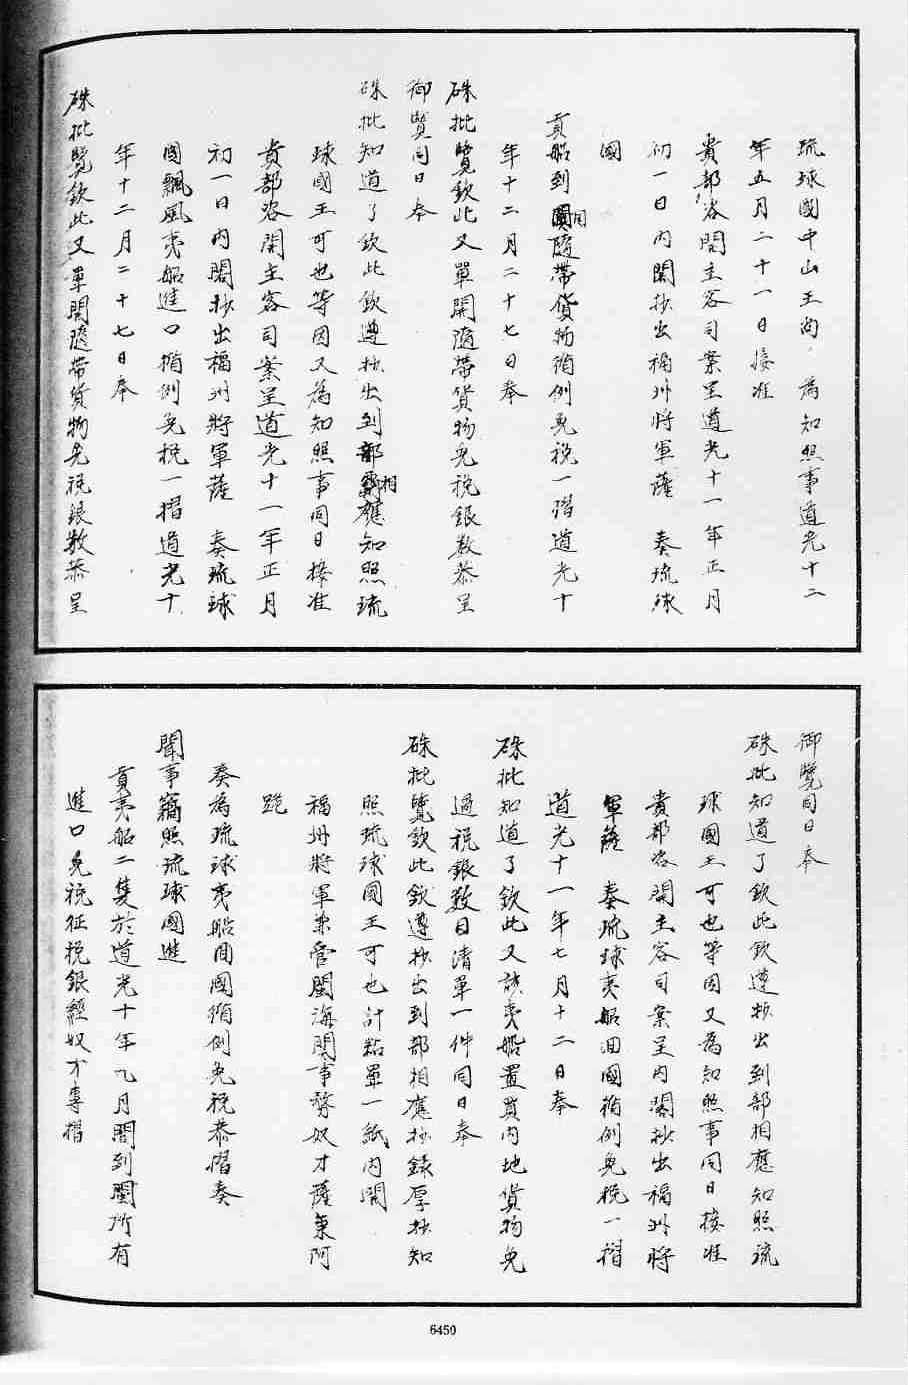 琉球國中山王尚　為知照事道光十二
年五月二十一日接准
貴部咨開主客司案呈道光十一年正月
初一日內閣抄出福州將軍薩　奏琉球
國
貢船到閩隨帶貨物循例免稅一摺道光十
年十二月二十七日奉
硃批覽欽此又單開隨帶貨物免稅銀數恭呈
御覽同日奉
硃批知道了欽此欽遵抄出到部相應知照琉
球國王可也等因又為知照事同日接准
貴部咨開主客司案呈道光十一年正月
初一日內閣抄出福州將軍薩　奏琉球
國飄風夷船進口循例免稅一摺道光十
年十二月二十七日奉
硃批覽欽此又單開隨帶貨物免稅銀數恭呈
御覽同日奉
硃批知道了欽此欽遵抄出到部相應知照琉
球國王可也等因又為知照事同日接准
貴部咨開主客司案呈內閣抄出福州將
軍薩　奏琉球夷船回國循例免稅一摺
道光十一年七月十二日奉
硃批知道了欽此又該夷船置買內地貨物免
過稅銀數目清單一件同日奉
硃批覽欽此欽遵抄出到部相應抄錄厚抄知
照琉球國王可也計粘單一紙內開
福州將軍兼管閩海關事務奴才薩秉阿
跪
奏為琉球夷船回國循例免稅恭摺奏
聞事竊照琉球國進
貢夷船二隻於道光十年九月間到閩所有
進口免稅征稅銀經奴才專摺
6450